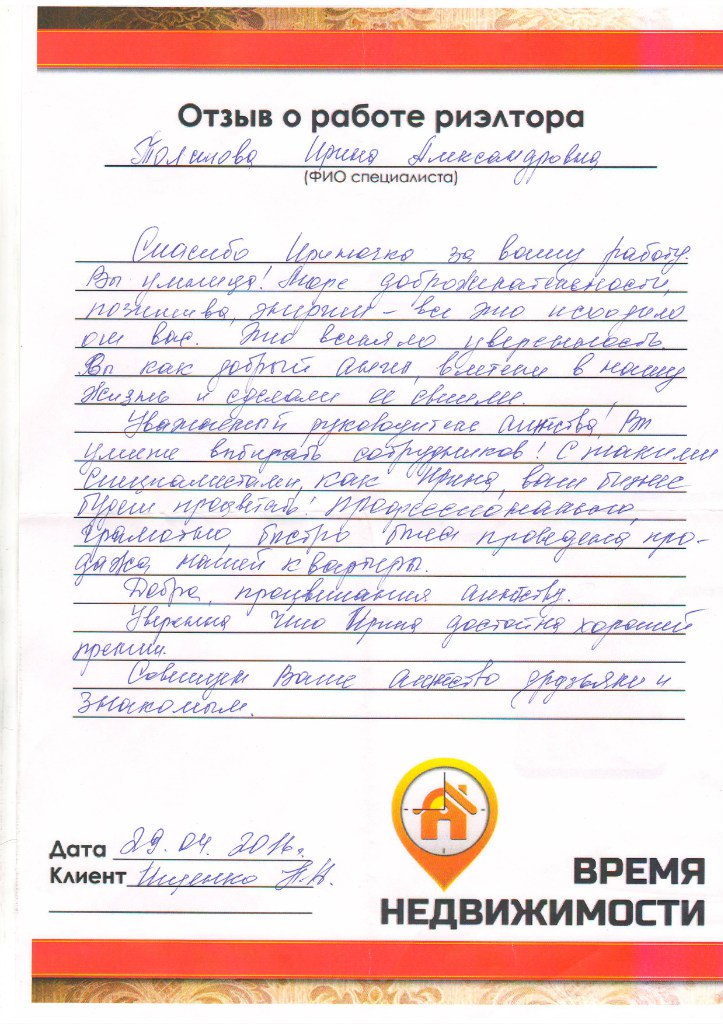 Отзыв о работе риэлтора
Ирина Александровна
(ФИО специалиста)
Спасибо Ириночка за вашу работу.
Вы умница! Море доброжелательности,
позитива, энергии – все это исходило
от вас. Это вселяло уверенность.
Вы как добрый ангел, влетели в нашу
жизнь и сделали ее
Уважаемый руководитель агентства! Вы
умеете выбирать сотрудников! С такими
специалистами, как Ирина, ваш бизнес
будет процветать! Профессионально,
грамотно, быстро была проведена про-
дажа нашей квартиры.
Добра, процветания агентству.
Уверенна что Ирина достойна хорошей
премии.
Советуем Ваше агентство друзьям и
знакомым.
Дата 29.04.2016г.
Клиент Ищенко Н.Н.
ВРЕМЯ
НЕДВИЖИМОСТИ